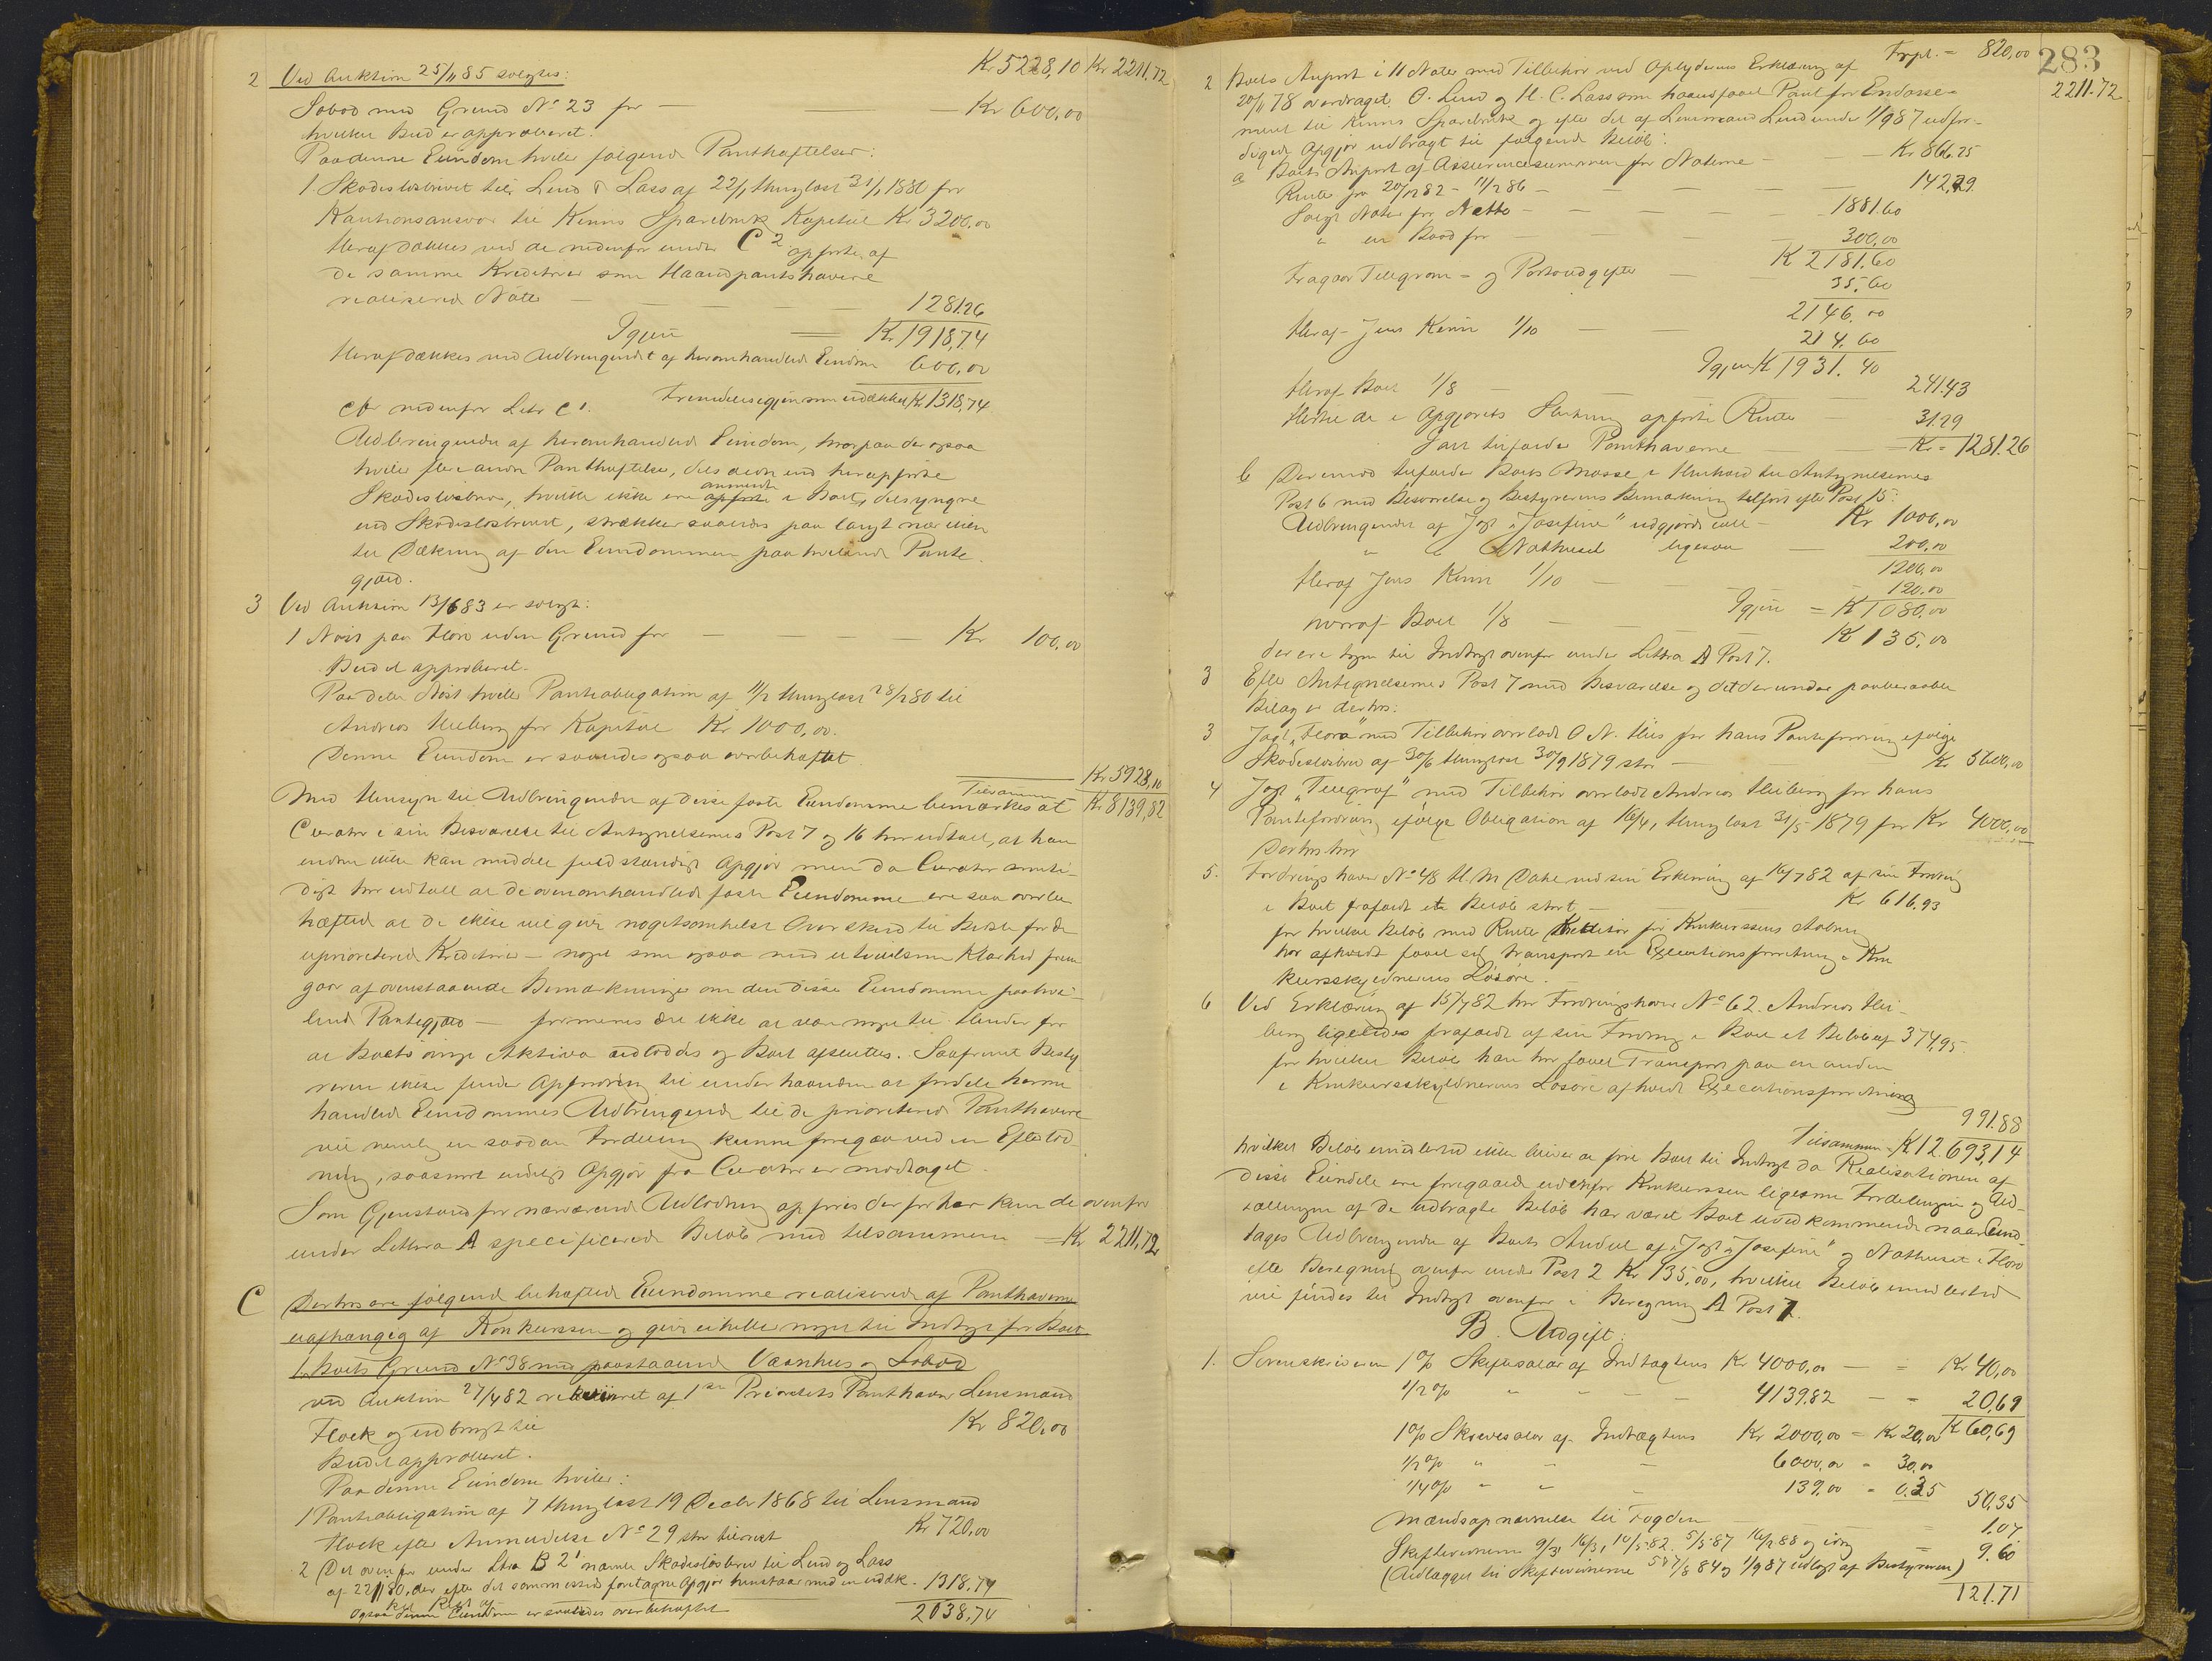 Kr 5228,10 Kr 2211,72
2 Ved Auktion 25/11 85 solgtes:
Søbod med Grund No 23 for — Kr 600,00
hvilket Bud er approberet.
Paa denne Eiendom hviler følgende Panthæftelser:
1. Skadesløsbrevet til Lund & Lass af 22/1 thinglæst 31/1 1880 for
Kautionsansvar til Kinns Sparebank Kapital Kr 3200,00
Heraf dækkes ved de nedenfor under C 2 opførte af
de samme Kreditorer som Haandpantshavere
realiserede Nøter — 1281.26
Igjen — Kr 1918,74
Heraf dækkes ved Udbringendet af heromhandlede Eiendom 600,00
Fremdeles igjen som udækket Kr 1318,74
cfr nedenfor Litr C 1.
Udbringendet af heromhandlede Eiendom, hvorpaa der ogsaa
hviler flere andre Panthæftelser, dels ældre end her opførte
Skadesløsbrev, hvilke ikke ere anmeldte i Boet, dels yngre
end Skadesløsbrevet, strækker saaledes paa langt nær ikke
til Dækning af den Eiendommen paahvilende Pante-
gjæld.
3 Ved Auktion 13/6 83 er solgt:
1 Nøst paa Florø uden Grund for — Kr 100,00
Budet approberet.
Paa dette Nøst hviler Pantobligation af 11/2 thinglæst 28/2 80 til
Andreas Heiberg for Kapital Kr 1000,00.
Denne Eiendom er saaledes ogsaa overbehæftet.
Kr 5928,10
Tilsammen Kr 8139,82
Med Hensyn til Udbringendet af disse faste Eiendomme bemærkes at
Curator i sin Besvarelse til Antegnelsernes Post 7 og 16 har udtalt, at han
endnu ikke kan meddele fuldstændigt Opgjør men da Curator samti-
digt har udtalt at de ovenomhandlede faste Eiendomme ere saa overbe-
hæftede at de ikke vil give nogetsomhelst Overskud til Bedste for de
uprioriterede Kreditorer — noget som ogsaa med utvivlsom Klarhed frem-
gaar af ovenstaaende Bemærkninger om den disse Eiendomme paahvi-
lende Pantegjæld — formenes der ikke at være noget til Hinder for
at Boets øvrige Aktiva udloddes og Boet afsluttes. Saafremt Besty-
reren ikke finder Opfordring til underhaanden at fordele herom
handlede Eiendommes Udbringende til de prioriterede Panthavere
vil nemlig en saadan Fordeling kunne foregaa ved en Efterlod-
ning, saasnart endeligt Opgjør fra Curator er modtaget.
Som Gjenstand for nærværende Udlodning opføres derfor her kun de ovenfor
under Littra A specificerede Beløb med tilsammen — Kr 2211,72
C Derhos ere følgende behæftede Eiendomme realiserede af Panthaverne
uafhængig af Konkursen og giver ei heller noget til Indtægt for Boet
1. Boets Grund No 38 med paastaaende Vaanhus og Søbod
ved Auktion 27/4 82 rekvireret af 1ste Prioritets Panthaver Lensmand
Flock og udbragt til Kr 820,00
Budet approberet.
Paa denne Eiendom hviler:
1 Pantobligation af 7 thinglæst 19 Decbr 1868 til Lensmand
Flock efter Anmeldelse No 29 stor tilrest Kr 720,00
2 Det ovenfor under Litra B 2 1 nævnte Skadesløsbrev til Lund og Lass
af 22/1 80, der efter det sammesteds foretagne Opgjør henstaar med en udæk-
ket Rest af 1318,74
Ogsaa denne Eiendom er saaledes overbehæftet 2038,74
283
Trpt. = 820,00 2211.72
2 Boets Anpart i 11 Nøter med Tilbehør ved Opbyderens Erklæring af
20/11 78 overdraget O. Lund og H. C. Lass som haandfaaet Pant for Endosse-
ment til Kinns Sparebank og efter det af Lensmand Lund under 1/9 87 udfær-
digede Opgjør udbragt til følgende Beløb:
a Boets Anpart af Assurancesummen for Nøterne — Kr 866.25
Renter fra 20/12 82 - 11/2 86 — 142,29
Solgt Nøter for Netto — 1881.60
" en Baad for — 300,00
K 2181.60
Fragaar Telegram- og Portoudgifter — 35.60
2146.00
Heraf Jens Kinn 1/10 — 214.60
Igjen K 1931.40
Heraf Boet 1/8 — 241.43
Hertil de i Opgjørets Slutning opførte Renter — 31.29
Som tilfalder Panthaverne — Kr = 1281.26
b Derimod tilfalder Boets Masse i Henhold til Antegnelsernes
Post 6 med Besvarelse og Bestyrerens Bemærkning tilført efter Post 15:
Udbringendet af Jagt "Josefine" udgjørende — Kr 1000,00
" " Nøthuset ligesaa — 200,00
1200,00
Heraf Jens Kinn 1/10 — 120.00
Igjen = K 1080,00
hvoraf Boet 1/8 — K 135,00
der ere tagne til Indtægt ovenfor under Littra A Post 7.
3 Efter Antegnelsernes Post 7 med Besvarelse og det derunder paaberaabte
Bilag er derhos:
3 Jagt "Flora" med Tilbehør overladt O N. Hus for hans Pantefordring ifølge
Skadesløsbrev af 30/6 thinglæst 30/9 1879 stor — Kr 5600,00
4 Jagt "Telegraf" med Tilbehør overladt Andreas Heiberg for hans
Pantefordring ifølge Obligation af 16/4, thinglæst 31/5 1879 for Kr 4000,00
Derhos har
5. Fordringshaver No 48 H. M Dahl ved sin Erklæring af 16/7 82 af sin Fordring
i Boet frafaldt et Beløb stort — Kr 616.93
for hvilket Beløb med Renter Kreditor før Konkursens Aabning
har afholdt faaet sig transport en Executionsforretning i Kon-
kursskyldnerens Løsøre.
6 Ved Erklæring af 15/7 82 har Fordringshaver No 62. Andreas Hei-
berg ligeledes frafaldt af sin Fordring i Boet et Beløb af 374,95
for hvilket Beløb han har faaet Transport paa en anden
i Konkursskyldnerens Løsøre afholdt Executionsforretning
991.88
Tilsammen K 12.693,14
hvilket Beløb imidlertid ikke bliver at føre Boet til Indtægt da Realisationen af
disse Eiendele ere foregaaede udenfor Konkursen ligesom Fordelingen og Ud-
tællingen af de udbragte Beløb har været Boet uvedkommende naar und-
tages Udbringendet af Boets Andel af Jagt "Josefine" og Nøthuset i Florø
efter Beregning ovenfor under Post 2 Kr 135,00, hvilket Beløb imidlertid
vil findes til Indtægt ovenfor i Beregning A Post 7.
B. Udgift:
1. Sorenskriveren 1% Skiftesalær af Indtægtens Kr 4000,00 — = Kr 40,00
1/2% " " — 4139.82 — = 20,69
K 60,69
1% Skrivesalær af Indtægtens Kr 2000,00 = Kr 20,00
1/2% " " 6000,00 = 30,00
1/4% " " 139.00 = 0.35 50,35
Mændsopnævnelse til Fogden — 1.07
Skiftevidnerne 9/3, 16/3, 10/5 82. 5/5 87 16/2 88 og iøvrig = 9.60
(Udlægget til Skiftevidnerne 7/8 84 og 1/9 87 udlagt af Bestyreren)
121.71